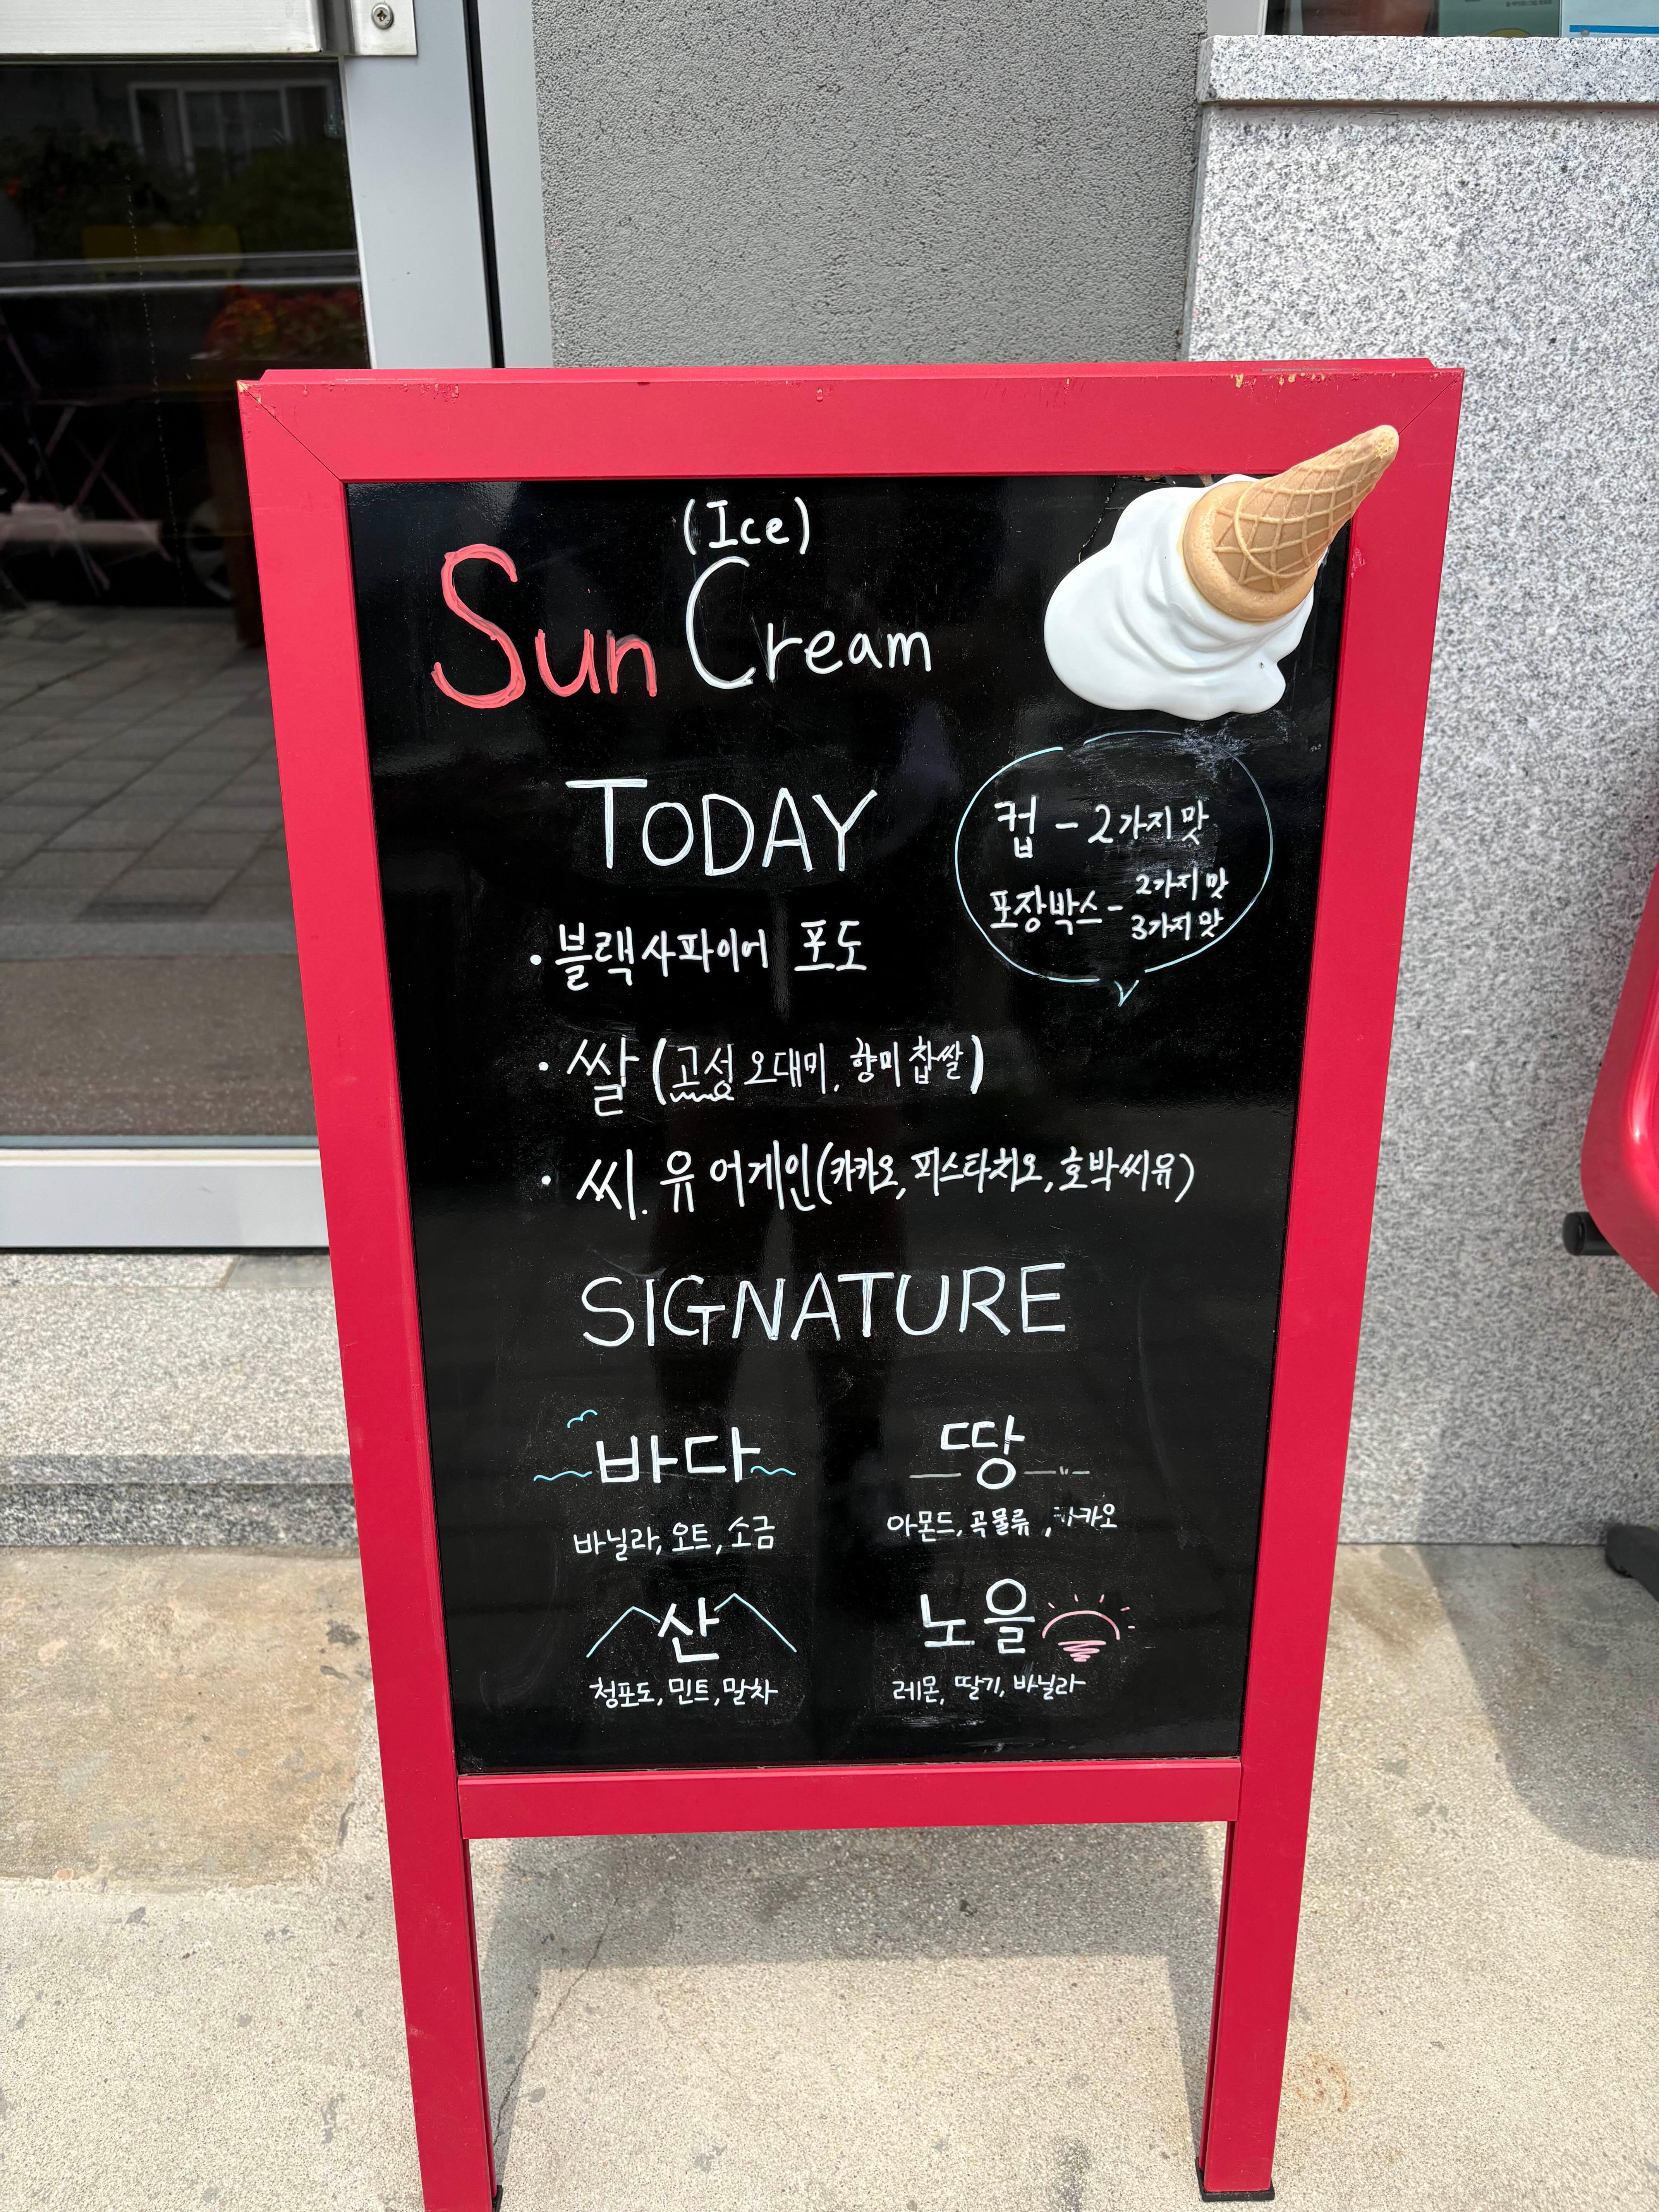 (Ice)
Sun Cream
TODAY
컵 - 2가지 맛
포장박스 - 2가지 맛
3가지 맛
· 블랙사파이어 포도
· 쌀 (고성 오대미, 향미찹쌀)
· 씨. 유 어게인 (카카오, 피스타치오, 호박씨유)
SIGNATURE
바다
바닐라, 오트, 소금
땅
아몬드, 곡물류, 카카오
산
청포도, 민트, 말차
노을
레몬, 딸기, 바닐라